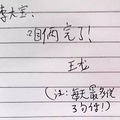 李大宝:
咱俩完了!
王龙
(注: 每天最多说
3句话!)